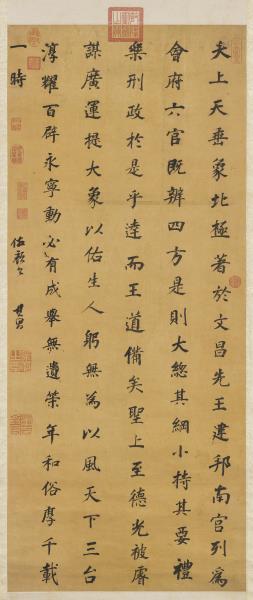 夫上天垂象北極著於文昌先王建邦南宮列爲
會府六官既辨四方是則大總其綱小持其要禮
樂刑政於是乎達而王道備矣聖上至德光被睿
謀廣運提大象以佑生人躬無為以風天下三台
淳耀百辟永寧動必有成舉無遺策年和俗厚千載
一時
其昌